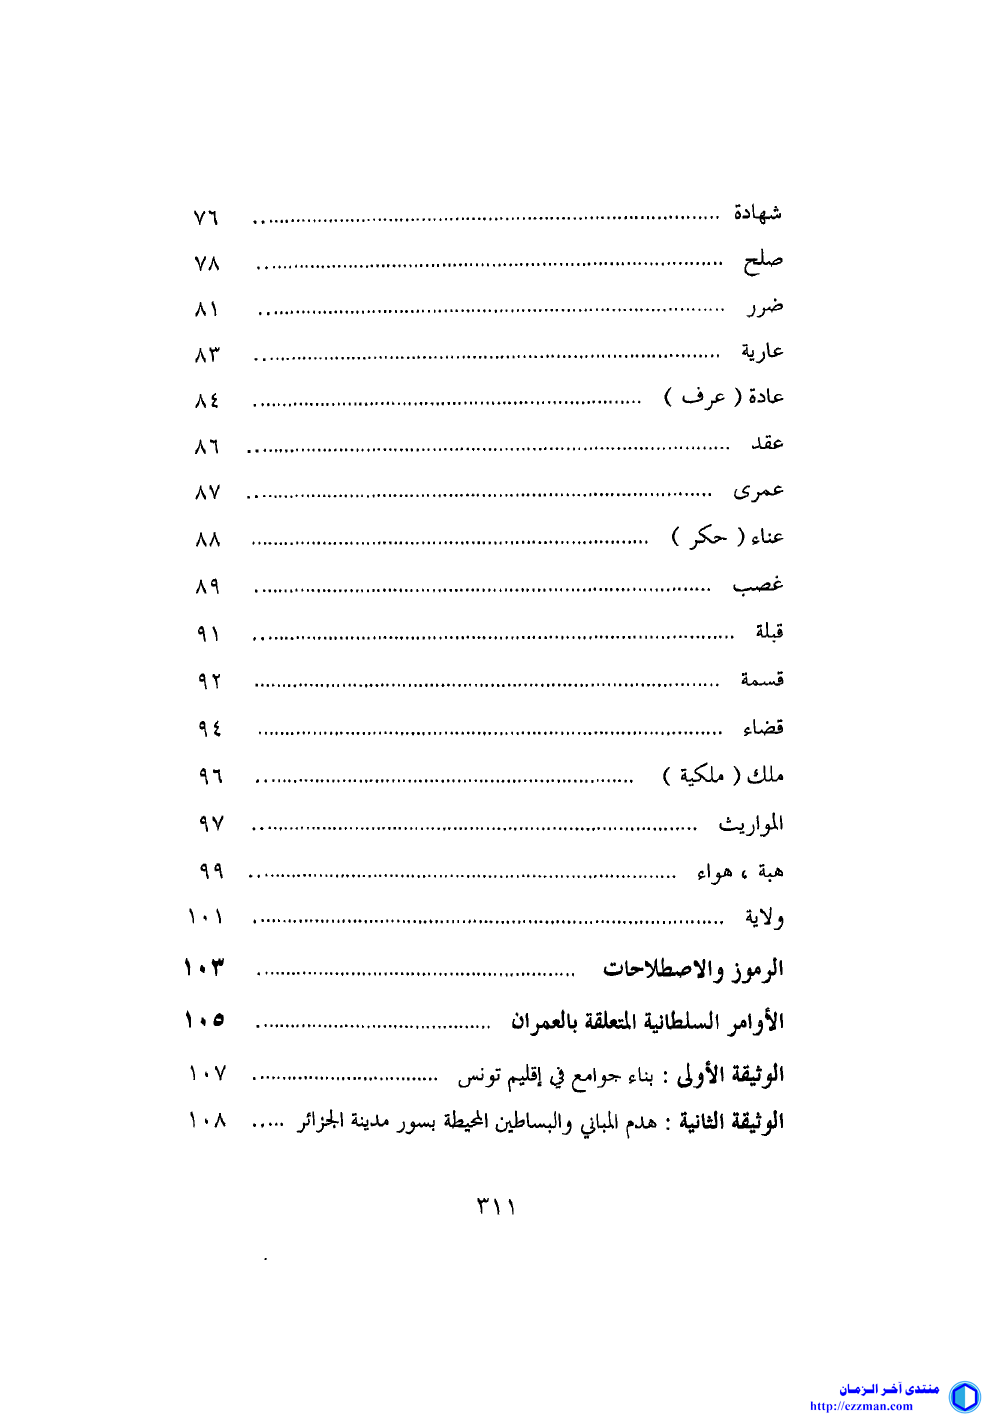 شهادة ........................ ٧٦
صلح ........................ ٧٨
ضرر ........................ ٨١
عارية ........................ ٨٣
عادة ( عرف ) ........................ ٨٤
عقد ........................ ٨٦
عمرى ........................ ٨٧
عناء ( حكر ) ........................ ٨٨
غصب ........................ ٨٩
قبلة ........................ ٩١
قسمة ........................ ٩٢
قضاء ........................ ٩٤
ملك ( ملكية ) ........................ ٩٦
المواريث ........................ ٩٧
هبة ، هواء ........................ ٩٩
ولاية ........................ ١٠١
الرموز والاصطلاحات ........................ ١٠٣
الأوامر السلطانية المتعلقة بالعمران ........................ ١٠٥
الوثيقة الأولى : بناء جوامع في إقليم تونس ........................ ١٠٧
الوثيقة الثانية : هدم المباني والبساطين المحيطة بسور مدينة الجزائر ..... ١٠٨
٣١١
منتدى آخر الزمان
http://ezzman.com